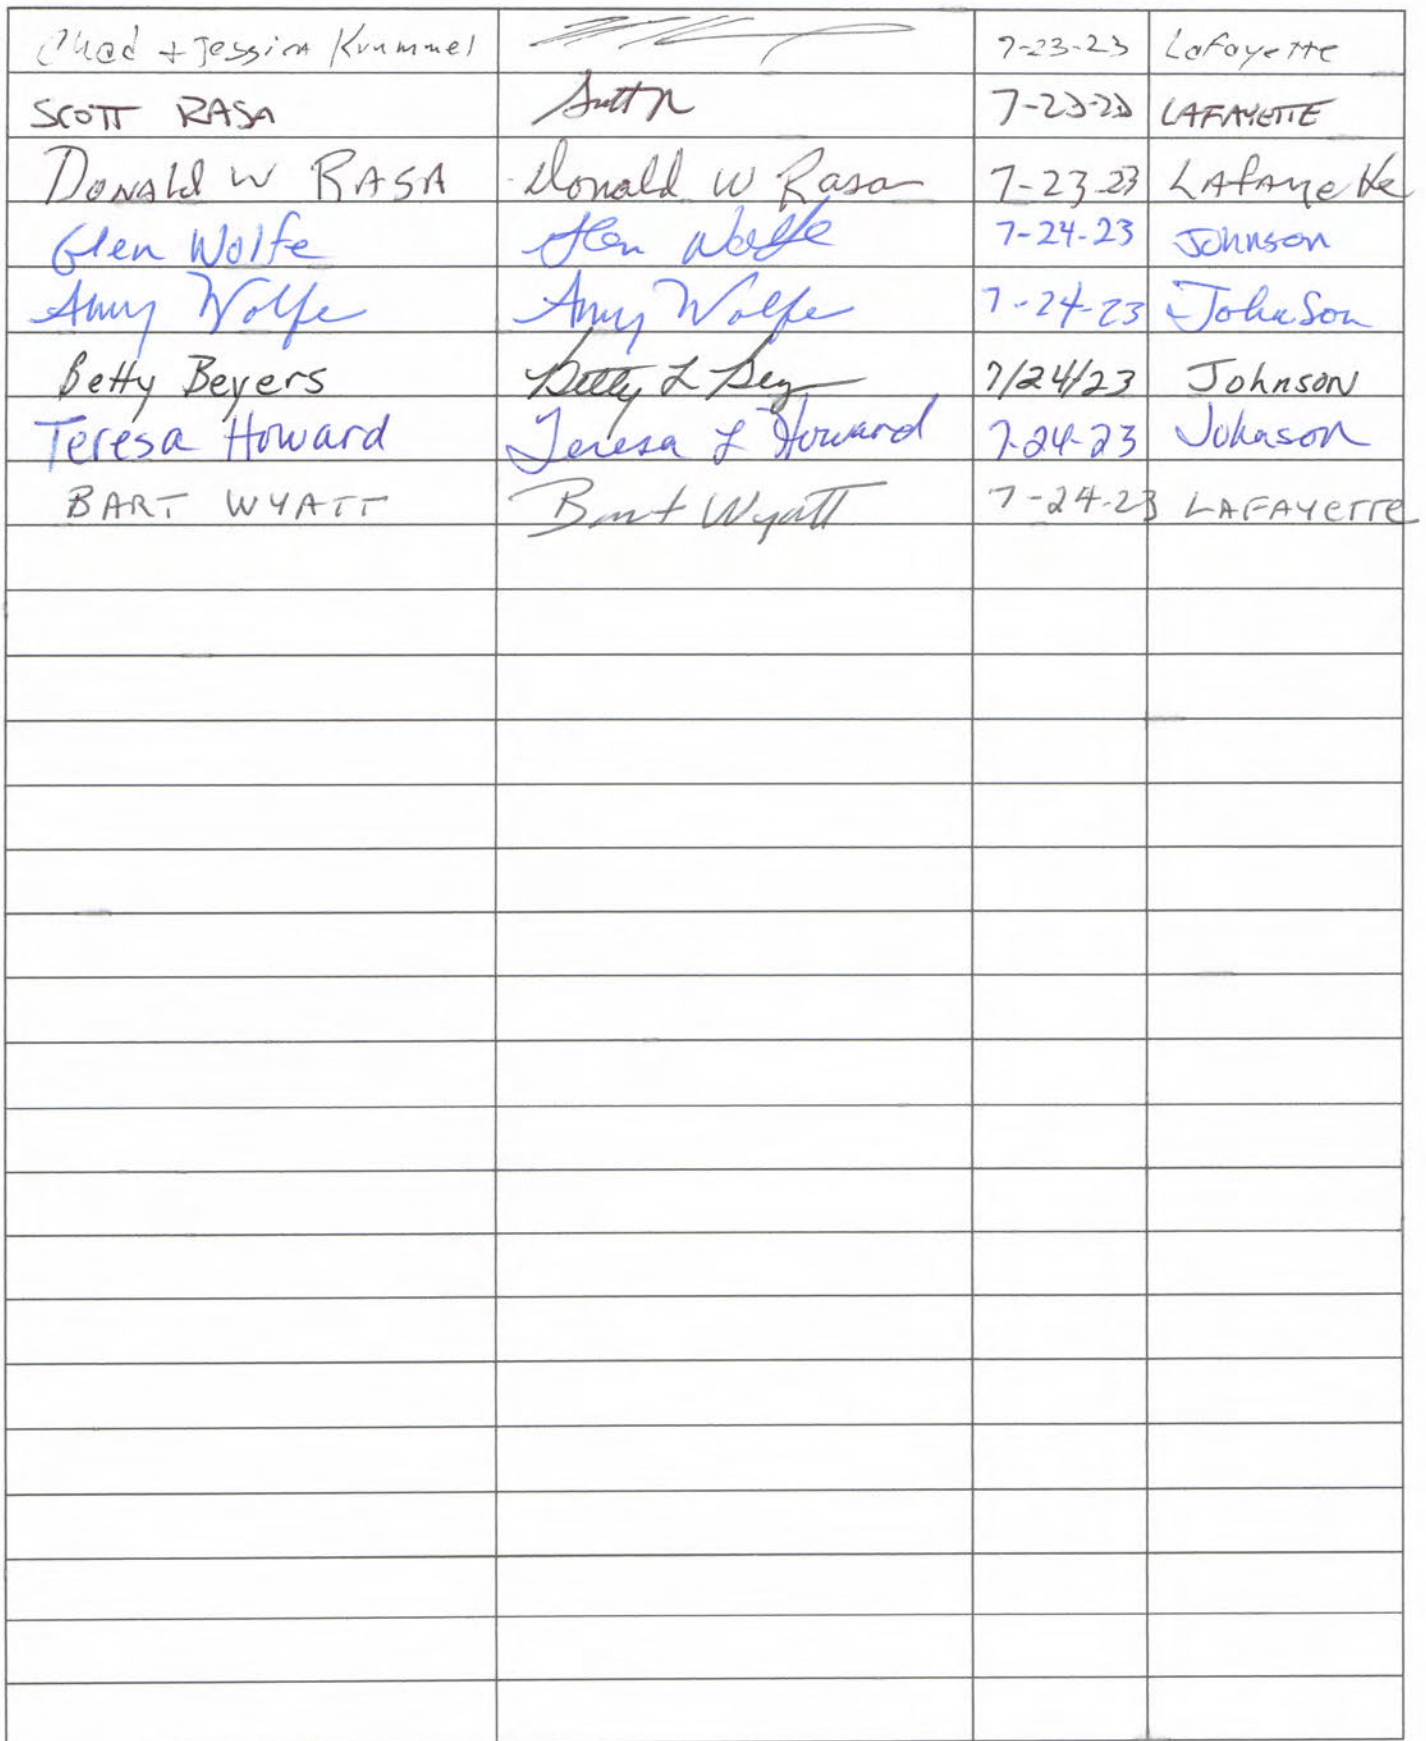 Chad + Jessica Krummel 7-23-23 Lafayette
SCOTT RASA 7-23-23 LAFAYETTE
DONALD W RASA Donald W Rasa 7-23-23 LAfAyette
Glen Wolfe Glen Wolfe 7-24-23 Johnson
Amy Wolfe Amy Wolfe 7-24-23 Johnson
Betty Beyers Betty L Bey 7/24/23 Johnson
Teresa Howard Teresa L Howard 7-24-23 Johnson
BART WYATT Bart Wyatt 7-24-23 LAFAYETTE